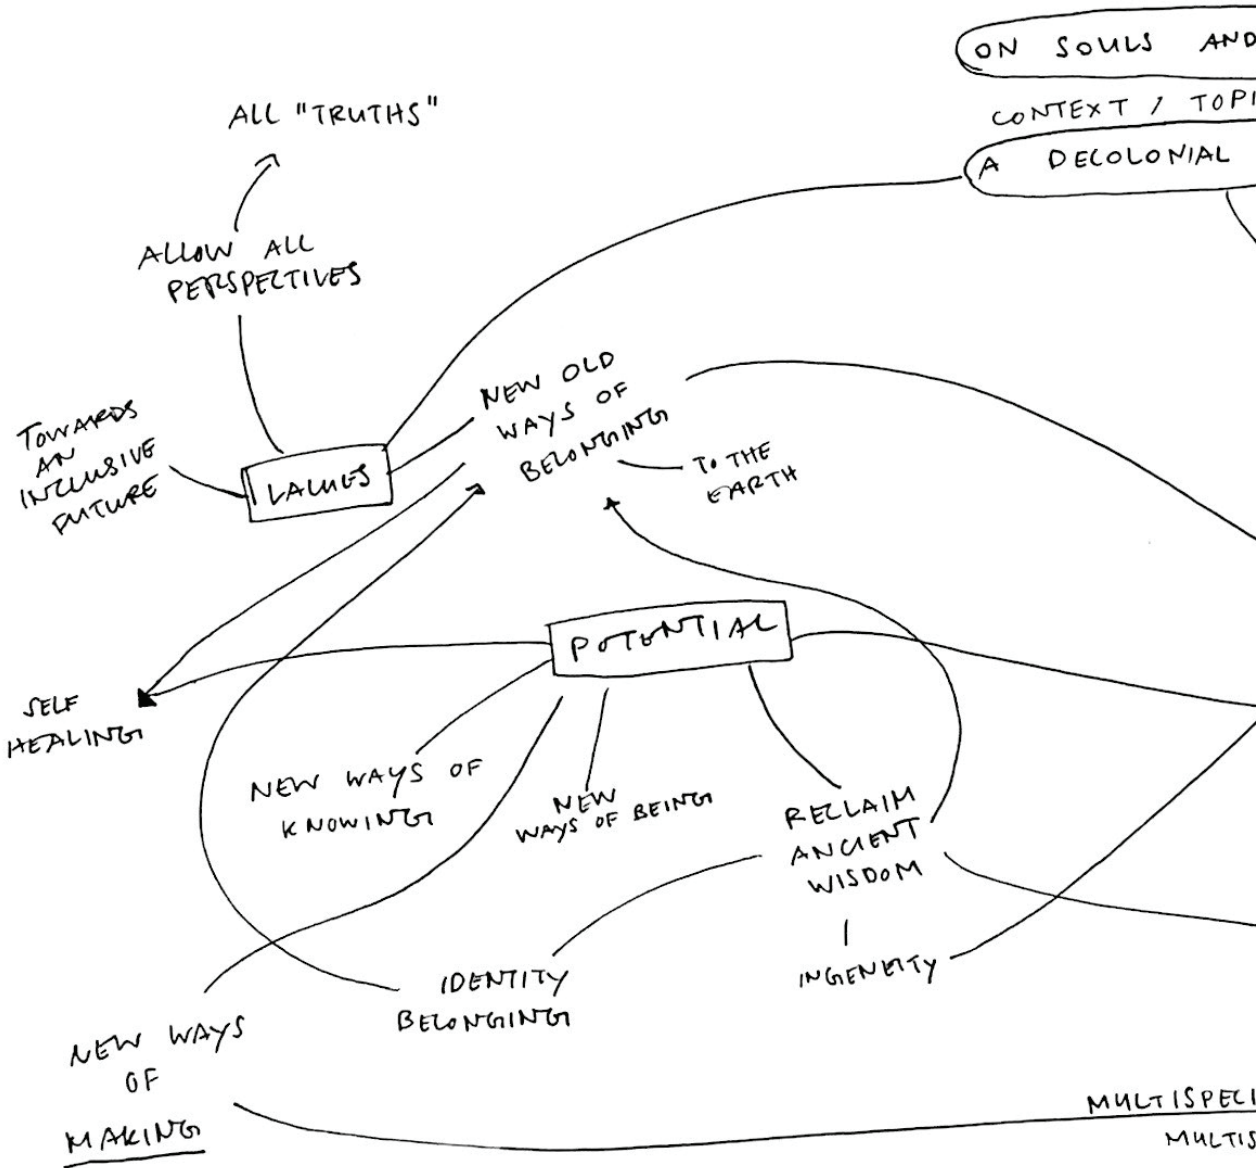 ON SOULS AND
CONTEXT / TOPI
A DECOLONIAL
ALL "TRUTHS"
ALLOW ALL
PERSPECTIVES
TOWARDS
AN
INCLUSIVE
FUTURE
VALUES
NEW OLD
WAYS OF
BELONGING
TO THE
EARTH
POTENTIAL
SELF
HEALING
NEW WAYS OF
KNOWING
NEW
WAYS OF BEING
RECLAIM
ANCIENT
WISDOM
INGENEITY
IDENTITY
BELONGING
NEW WAYS
OF
MAKING
MULTISPECI
MULTIS